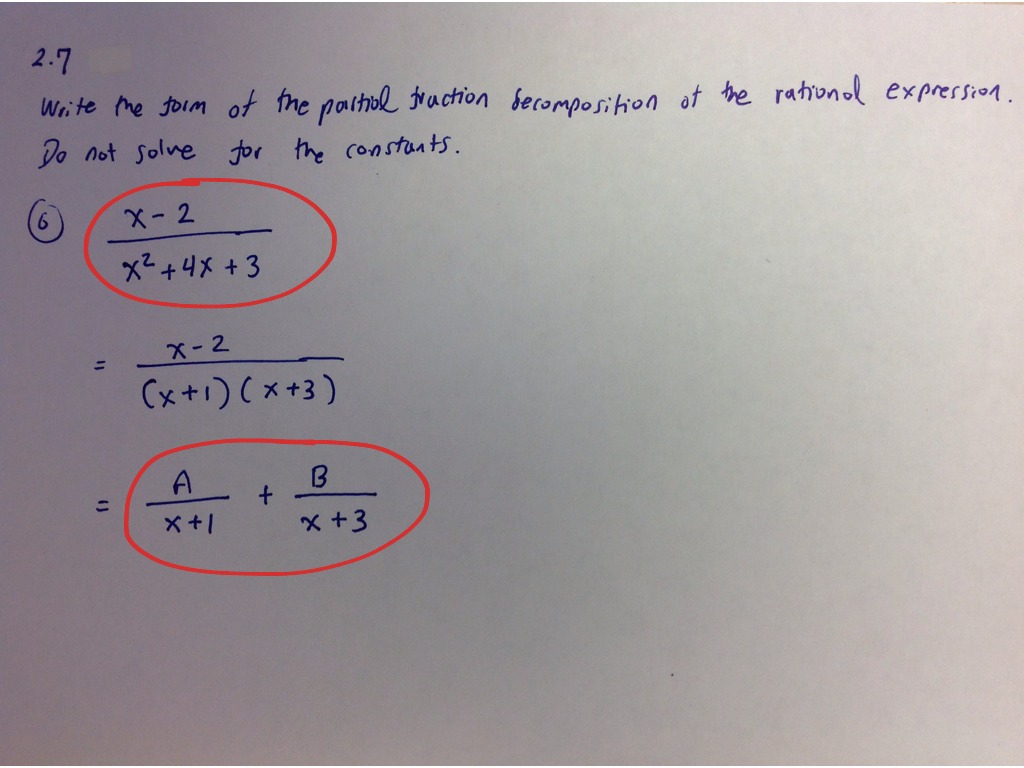 2.7
Write the form of the partial fraction decomposition of the rational expression.
Do not solve for the constants.
⑥ x - 2
x² + 4x + 3
= x - 2
(x+1)(x+3)
= A + B
x+1 x+3